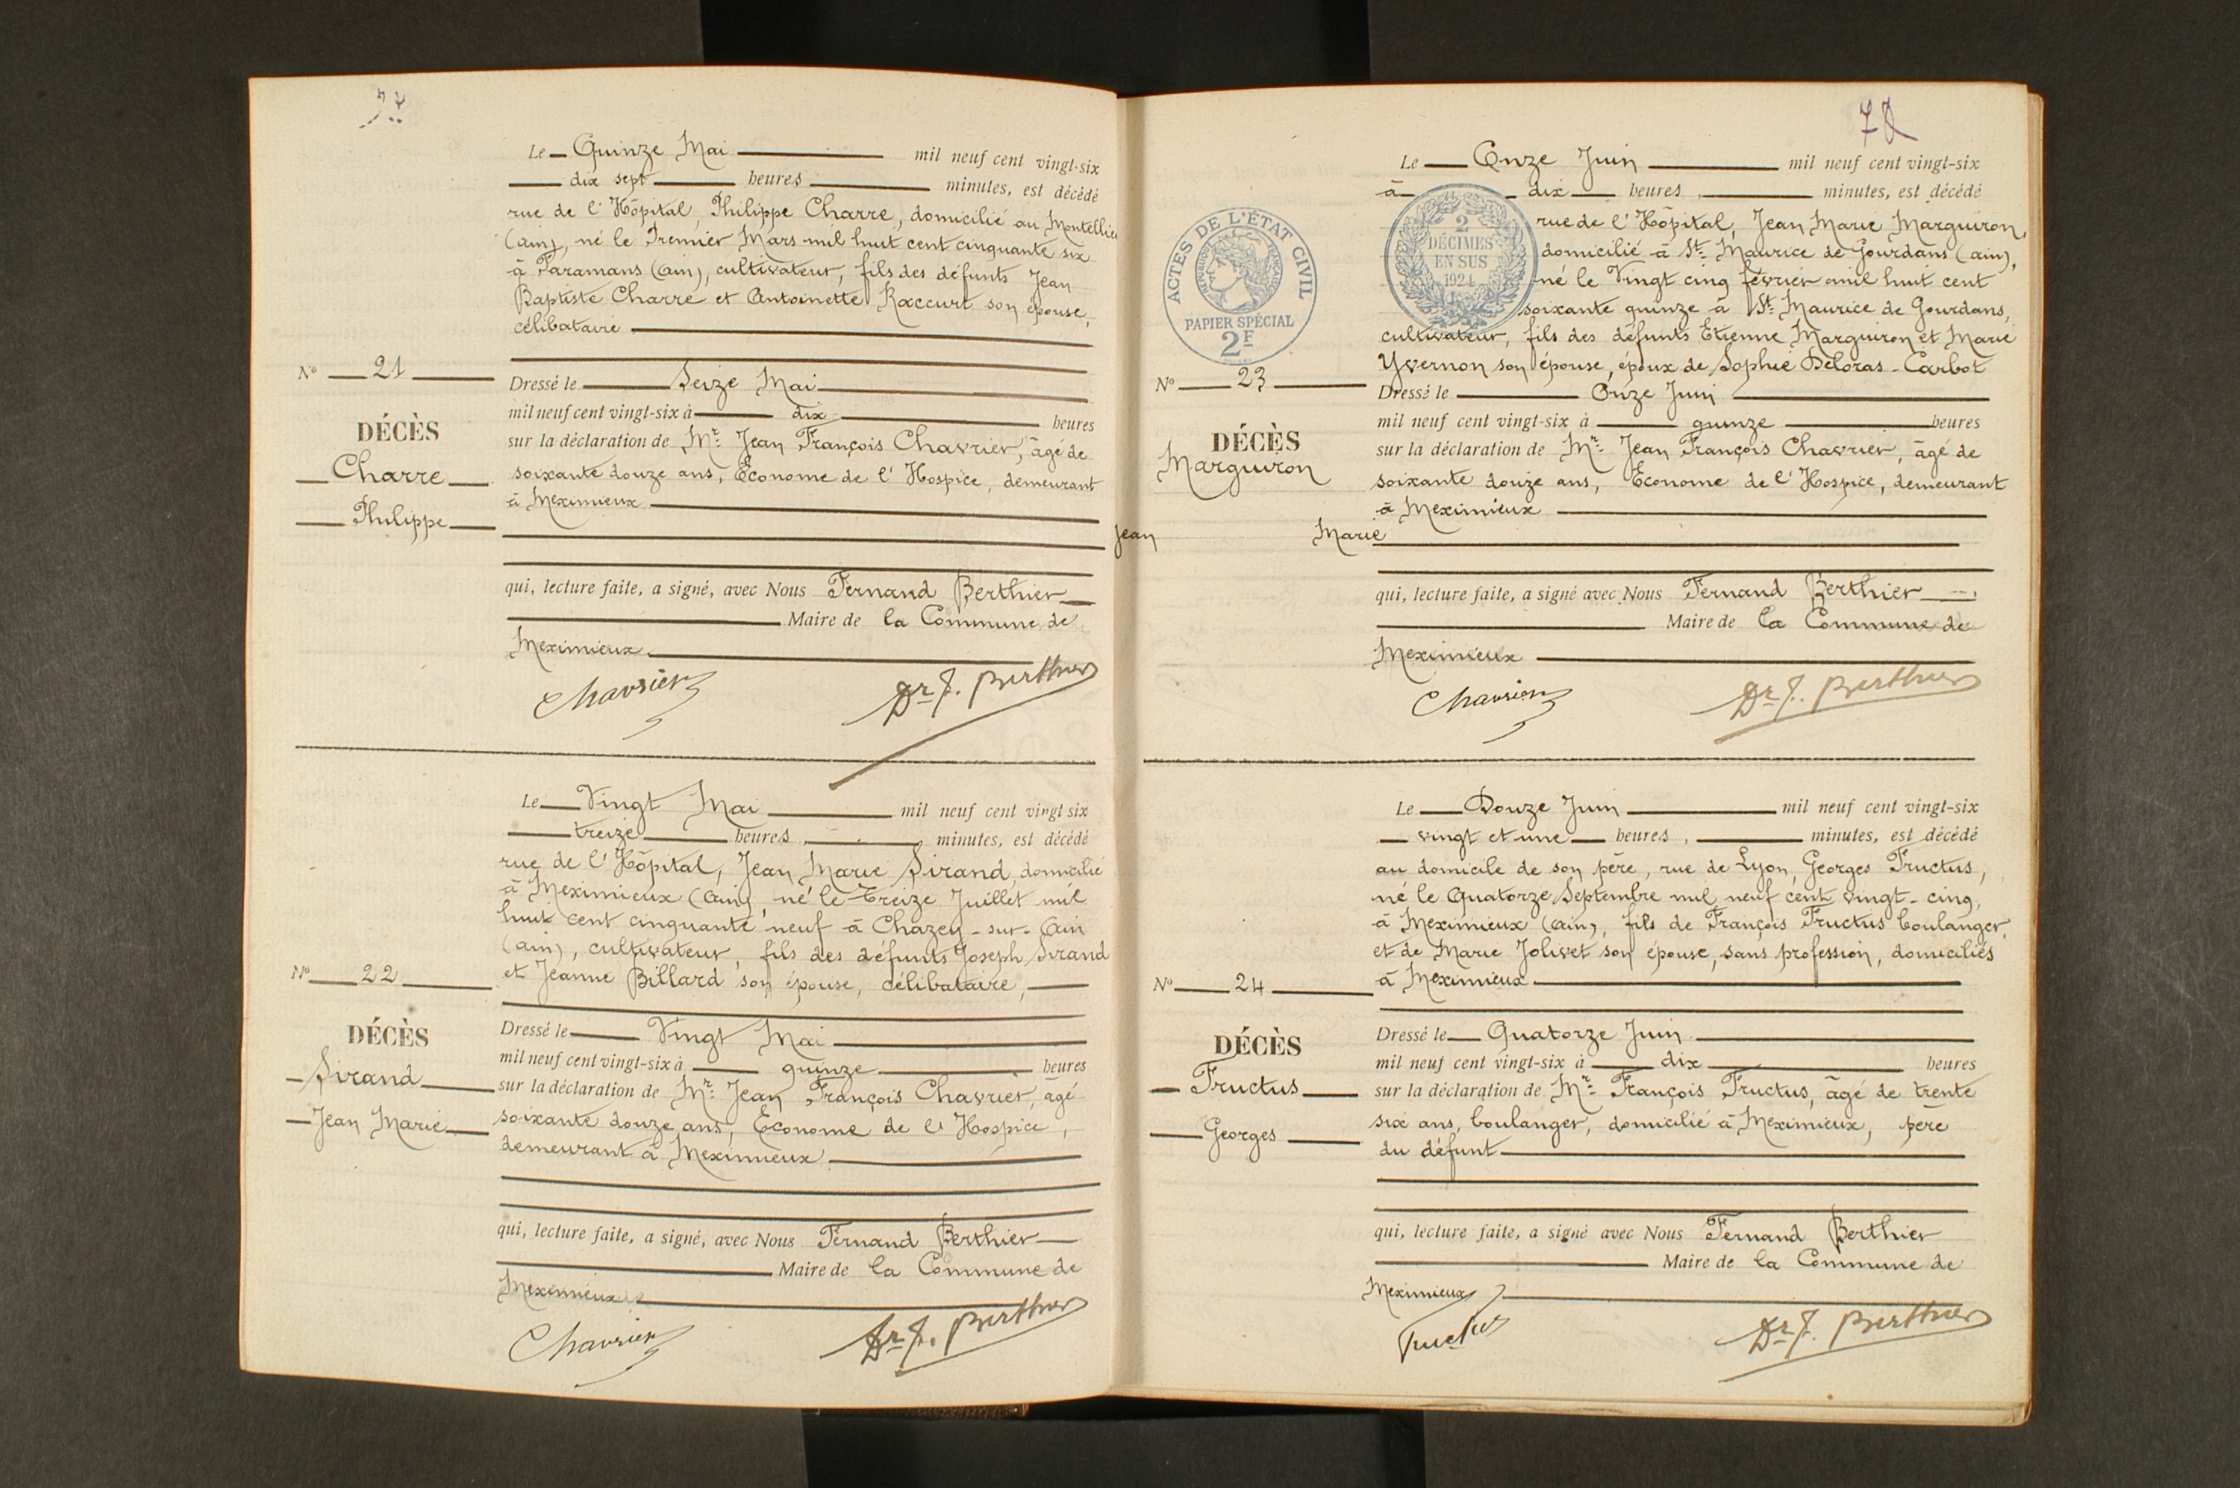 Le Quinze Mai mil neuf cent vingt-six
dix sept heures minutes, est décédé
rue de l'Hôpital, Philippe Charre, domicilié au Montellier
(ain), né le Premier Mars mil huit cent cinquante six
à Faramans (ain), cultivateur, fils des défunts Jean
Baptiste Charre et Antoinette Raccurt son épouse,
célibataire
No 21
Dressé le Seize Mai
mil neuf cent vingt-six à dix heures
DÉCÈS
sur la déclaration de Mr Jean François Chavrier, âgé de
Charre
soixante douze ans, Econome de l'Hospice, demeurant
à Meximieux
Philippe
qui, lecture faite, a signé, avec Nous Fernand Berthier
Maire de la Commune de
Meximieux
Chavrier Dr F. Berthier
Le Vingt Mai mil neuf cent vingt six
treize heures minutes, est décédé
rue de l'Hôpital, Jean Marie Sirand, domicilié
à Meximieux (ain), né le Treize Juillet mil
huit cent cinquante neuf à Chazey-sur-Ain
(ain), cultivateur, fils des défunts Joseph Sirand
No 22
et Jeanne Billard son épouse, célibataire,
Dressé le Vingt Mai
DÉCÈS
mil neuf cent vingt-six à quinze heures
Sirand
sur la déclaration de Mr Jean François Chavrier, âgé
Jean Marie
soixante douze ans, Econome de l'Hospice,
demeurant à Meximieux
qui, lecture faite, a signé, avec Nous Fernand Berthier
Maire de la Commune de
Meximieux
Chavrier Dr F. Berthier
78
Le Onze Juin mil neuf cent vingt-six
à dix heures minutes, est décédé
rue de l'Hôpital, Jean Marie Marguiron,
domicilié à St Maurice de Gourdans (ain),
né le Vingt cinq février mil huit cent
soixante quinze à St Maurice de Gourdans,
cultivateur, fils des défunts Etienne Marguiron et Marie
Yvernon son épouse, époux de Sophie Deloras-Carbot
ACTES DE L'ÉTAT CIVIL
PAPIER SPÉCIAL
2F
2
DÉCIMES
EN SUS
1924
No 23
Dressé le Onze Juin
mil neuf cent vingt-six à quinze heures
DÉCÈS
sur la déclaration de Mr Jean François Chavrier, âgé de
Marguiron
soixante douze ans, Econome de l'Hospice, demeurant
à Meximieux
Jean Marie
qui, lecture faite, a signé avec Nous Fernand Berthier
Maire de la Commune de
Meximieux
Chavrier Dr F. Berthier
Le Douze Juin mil neuf cent vingt-six
vingt et une heures, minutes, est décédé
au domicile de son père, rue de Lyon, Georges Fructus,
né le Quatorze Septembre mil neuf cent vingt-cinq,
à Meximieux (ain), fils de François Fructus boulanger,
et de Marie Jolivet son épouse, sans profession, domiciliés
No 24
à Meximieux
Dressé le Quatorze Juin
DÉCÈS
mil neuf cent vingt-six à dix heures
Fructus
sur la déclaration de Mr François Fructus, âgé de trente
Georges
six ans, boulanger, domicilié à Meximieux, père
du défunt
qui, lecture faite, a signé avec Nous Fernand Berthier
Maire de la Commune de
Meximieux
Fructus Dr F. Berthier